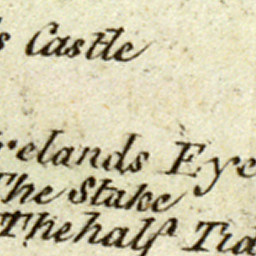 s Castle
relands Eye
The Stake
The half Tid